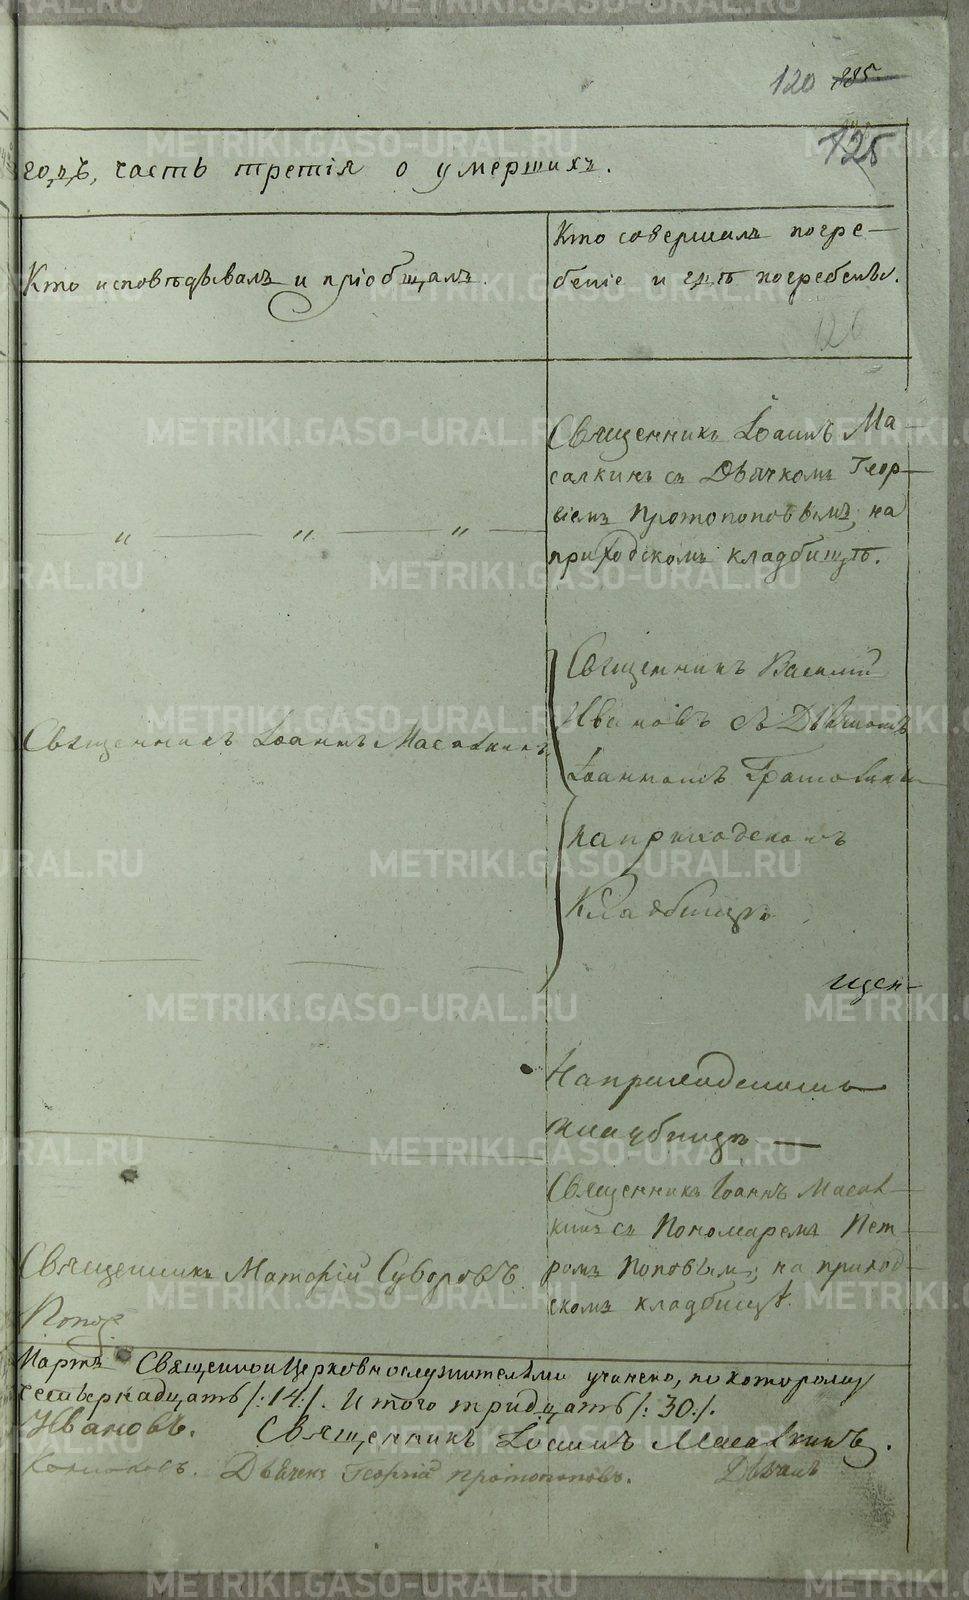 120 185
125
годъ, часть третія о умершихъ.
Кто исповѣдывалъ и пріобщалъ.
Кто совершалъ погре-
беніе и гдѣ погребены.
126
Священникъ Іоаннъ Ма-
салкинъ съ Дьячкомъ Геор-
гіемъ Протопоповымъ; на
приходскомъ кладбищѣ.
" " "
Священникъ Іоаннъ Масалкинъ
Священникъ Василий
Ивановъ съ Дьячкомъ
Іоанномъ
на приходскомъ
Кладбищѣ
щен-
На приходскомъ
кладбищѣ —
Священникъ Іоаннъ Масал-
кинъ съ Пономаремъ Пет-
ромъ Поповымъ; на приход-
скомъ кладбищѣ.
Священникъ Матѳій Суворовъ
Попов
Мартъ Священно и Церковнослужителями учинено, по которому
четырнадцать /:14:/. Итого тридцать /:30:/.
Ивановъ. Священникъ Іоаннъ Масалкинъ.
Дьячекъ Георгій Протопоповъ. Дьячекъ
METRIKI.GASO-URAL.RU